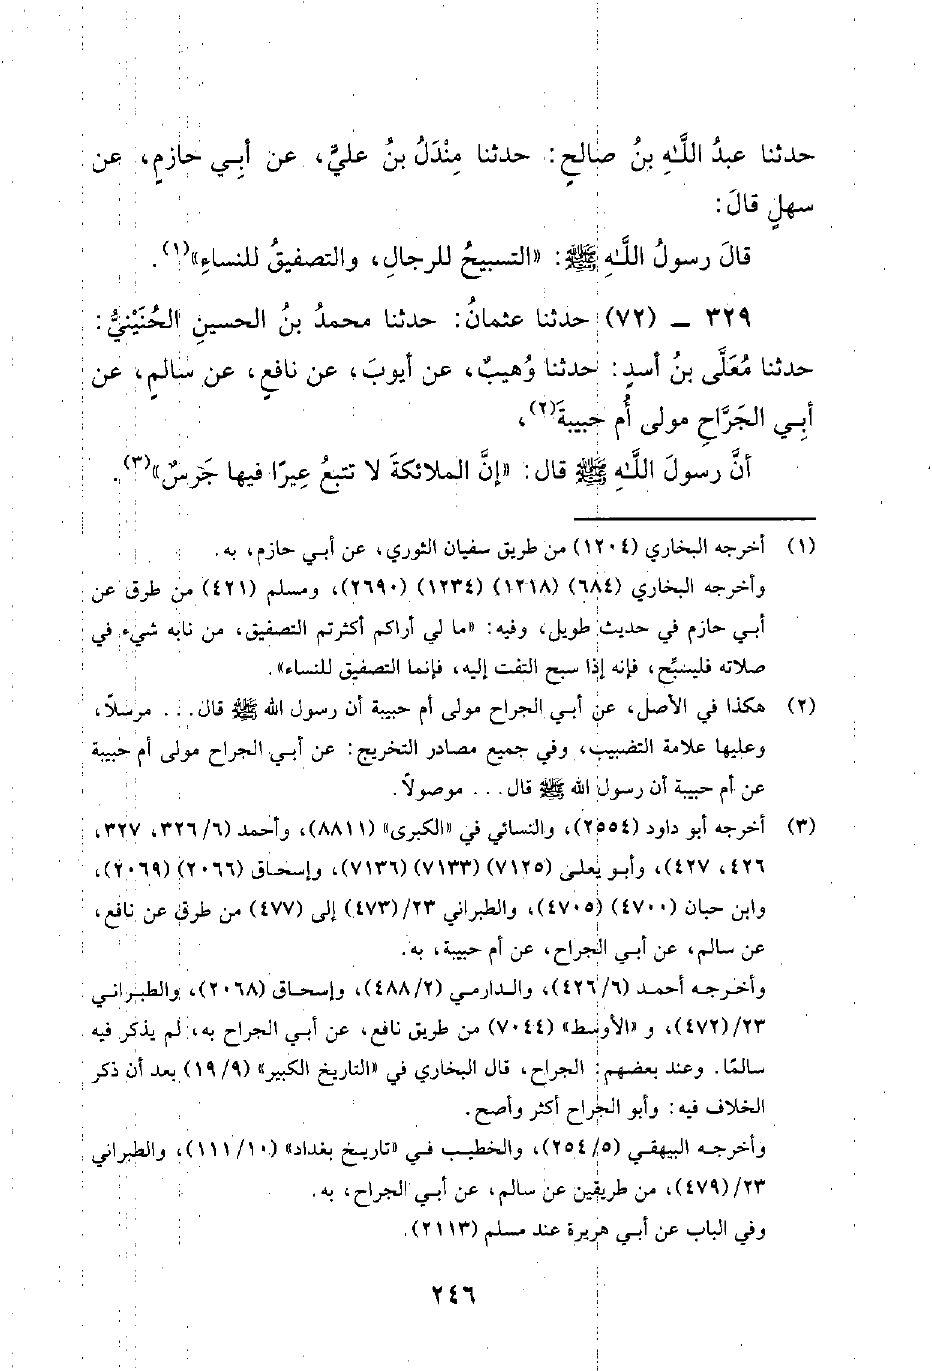 حدثنا عبدُ اللَّهِ بنُ صالحٍ: حدثنا مِنْدَلُ بنُ عليٍّ، عن أبي حازمٍ، عن
سهلٍ قالَ:
قالَ رسولُ اللَّهِ ﷺ: «التسبيحُ للرجالِ، والتصفيقُ للنساءِ»(١).
٣٢٩ ـ (٧٢) حدثنا عثمانُ: حدثنا محمدُ بنُ الحسينِ الحُنَيْنيُّ:
حدثنا مُعَلَّى بنُ أسدٍ: حدثنا وُهيبٌ، عن أيوبَ، عن نافعٍ، عن سالمٍ، عن
أبي الجَرَّاحِ مولى أُم حبيبةَ(٢)،
أنَّ رسولَ اللَّهِ ﷺ قال: «إنَّ الملائكةَ لا تتبعُ عِيرًا فيها جَرَسٌ»(٣).
(١) أخرجه البخاري (١٢٠٤) من طريق سفيان الثوري، عن أبي حازم، به.
وأخرجه البخاري (٦٨٤) (١٢١٨) (١٢٣٤) (٢٦٩٠)، ومسلم (٤٢١) من طرق عن
أبي حازم في حديث طويل، وفيه: «ما لي أراكم أكثرتم التصفيق، من نابه شيء في
صلاته فليسبِّح، فإنه إذا سبح التفت إليه، فإنما التصفيق للنساء».
(٢) هكذا في الأصل، عن أبي الجراح مولى أم حبيبة أن رسول الله ﷺ قال... مرسلاً،
وعليها علامة التضبيب، وفي جميع مصادر التخريج: عن أبي الجراح مولى أم حبيبة
عن أم حبيبة أن رسول الله ﷺ قال... موصولاً.
(٣) أخرجه أبو داود (٢٥٥٤)، والنسائي في «الكبرى» (٨٨١١)، وأحمد (٦/ ٣٢٦، ٣٢٧،
٤٢٦، ٤٢٧)، وأبو يعلى (٧١٢٥) (٧١٣٣) (٧١٣٦)، وإسحاق (٢٠٦٦) (٢٠٦٩)،
وابن حبان (٤٧٠٠) (٤٧٠٥)، والطبراني ٢٣/ (٤٧٣) إلى (٤٧٧) من طرق عن نافع،
عن سالم، عن أبي الجراح، عن أم حبيبة، به.
وأخرجه أحمد (٦/ ٤٢٦)، والدارمي (٢/ ٤٨٨)، وإسحاق (٢٠٦٨)، والطبراني
٢٣/ (٤٧٢)، و «الأوسط» (٧٠٤٤) من طريق نافع، عن أبي الجراح به، لم يذكر فيه
سالمًا. وعند بعضهم: الجراح، قال البخاري في «التاريخ الكبير» (٩/ ١٩) بعد أن ذكر
الخلاف فيه: وأبو الجراح أكثر وأصح.
وأخرجه البيهقي (٥/ ٢٥٤)، والخطيب في «تاريخ بغداد» (١٠/ ١١١)، والطبراني
٢٣/ (٤٧٩)، من طريقين عن سالم، عن أبي الجراح، به.
وفي الباب عن أبي هريرة عند مسلم (٢١١٣).
٢٤٦